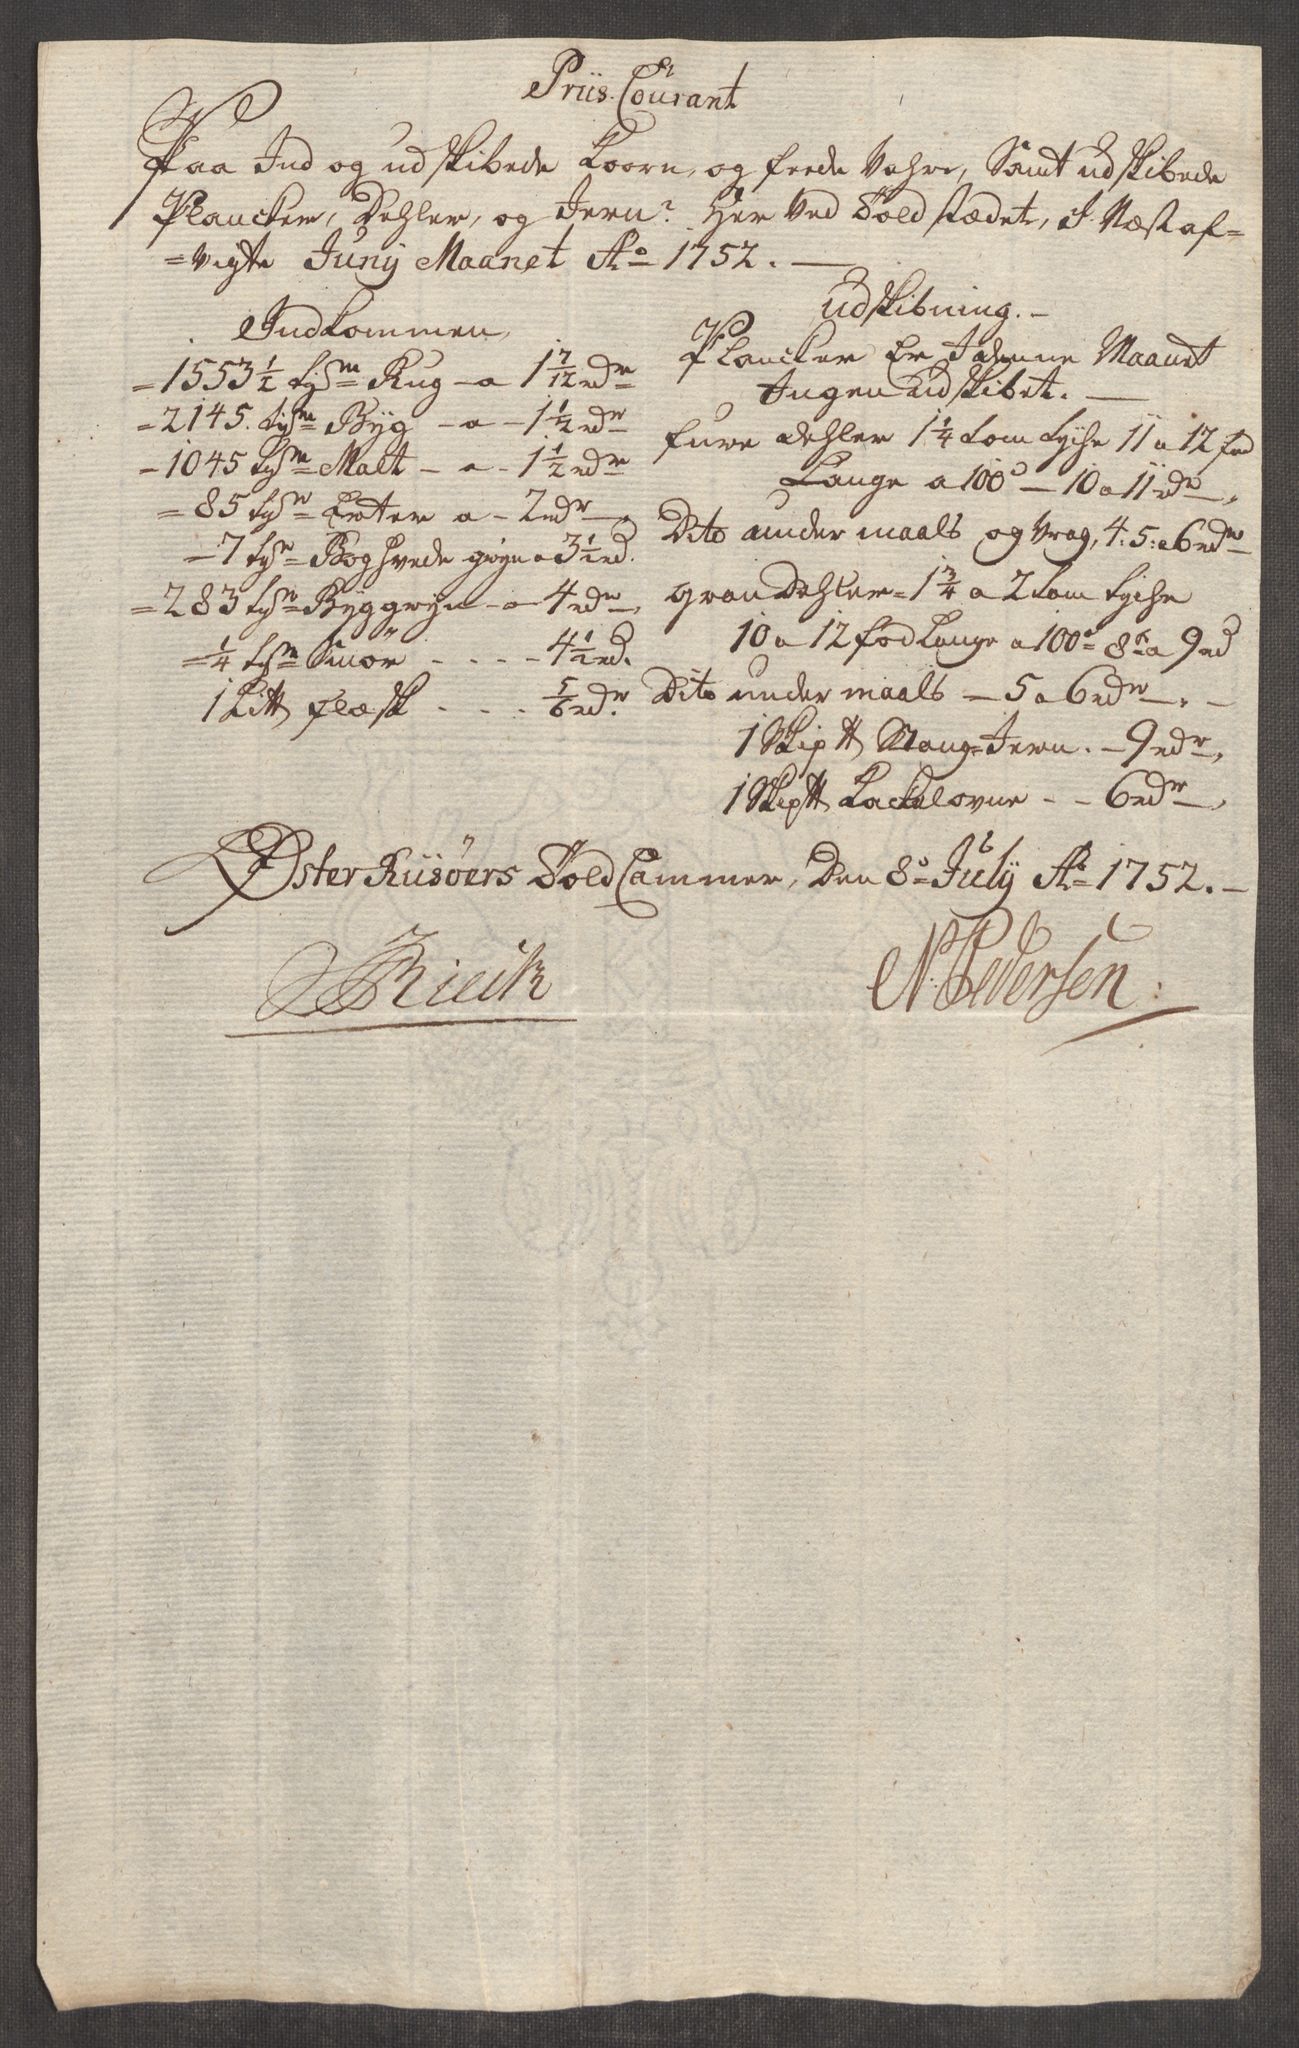 Priis. Courant
Paa Ind og udskibede Koorn, og feede Vahre, Samt udskibede
Plancker, Dehler, og Jern? Her Ved Told stædet, I Næst af=
=vigte Junij Maanet Ao 1752. —
Indkommen
=1553½ tdr Rug – a 1 7/12 rdr
=2145. tdr Byg – a – 1½ rdr
=1045 tdr Malt – a – 1½ rdr
=85 tdr Erter a – 2 rdr
=7 tdr Boghvede gryn a 3½ rd.
=283 tdr Byggryn – a – 4 rdr
=¼ tdr Smör - - - - 4½ rd.
1 Li℔ flæsk - - - - 5/6 rdr
udskibning. –
Plancker Er I denne Maanet
Ingen udskibet. —
fure dehler 1¼ tom tyche 11 a 12 fod
Lange a 100de – 10 a 11 rdr
Dito under maals og Vrag, 4: 5: a 6 rdr
gran Dehler = 1¾ a 2 tom tyche
10 a 12 fod Lange a 100de 8 a 9 rd
Dito under maals – 5 a 6 rdr. –
1 Skip℔ Stang=Jern. – 9 rdr
1 Skip℔ Kackelovne - - 6 rdr
Øster Riisöers Told Cammer, Den 8de Julij Ao 1752. –
N. Pedersen: